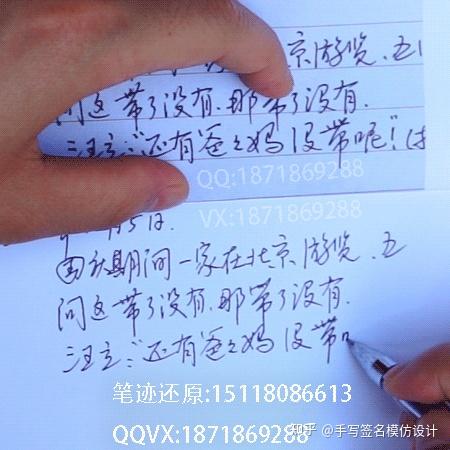 京游览、五
问这带了没有.那带了没有.
汪立:“还有爸々妈没带呢!”(
QQ:1871869288
VX:1871869288
月5日.
国庆期间一家在北京游览、五
问这带了没有.那带了没有.
汪立:“还有爸々妈没带
笔迹还原:15118086613
知乎 @手写签名模仿设计
QQVX:1871869288